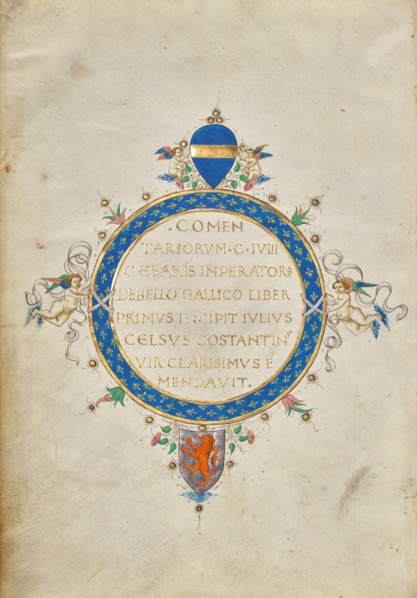 .COMEN
TARIORVM·C·IVLII
CESARIS INPERATORIS
DEBELLO GALLICO LIBER
PRIMUS INCIPIT IVLIVS
CELSVS COSTANTIN⁹
VIR CLARISIMVS E
MENDAVIT.